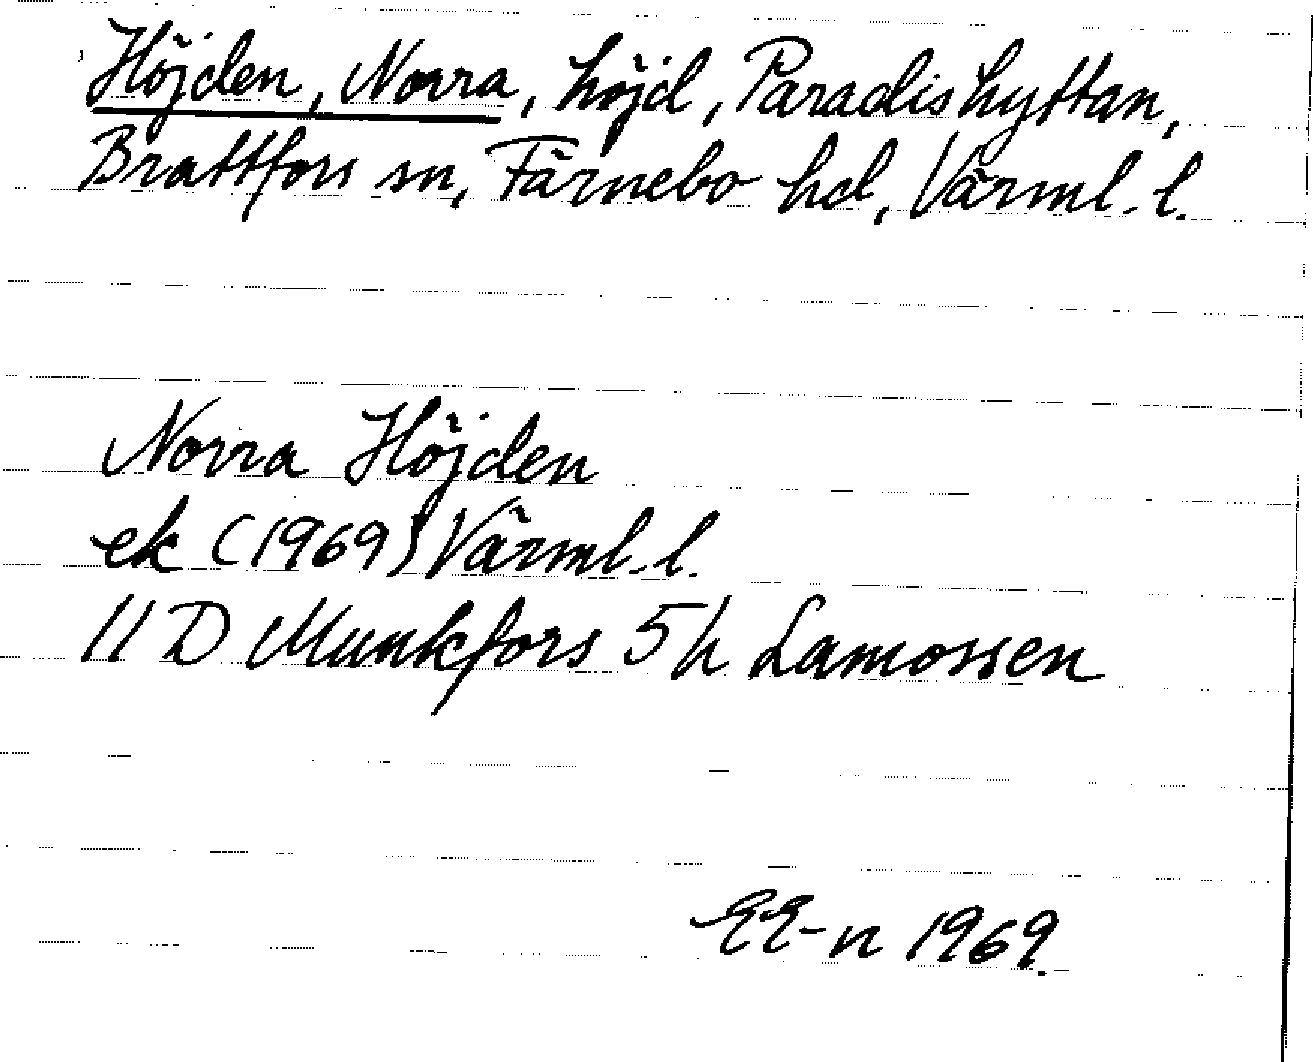 Höjden, Norra, höjd, Paradishyttan,
Brattfors sn, Färnebo hd, Värml. l.
Norra Höjden
ek (1969) Värml. l.
11 D Munkfors 5h Lamossen
EE-n 1969.